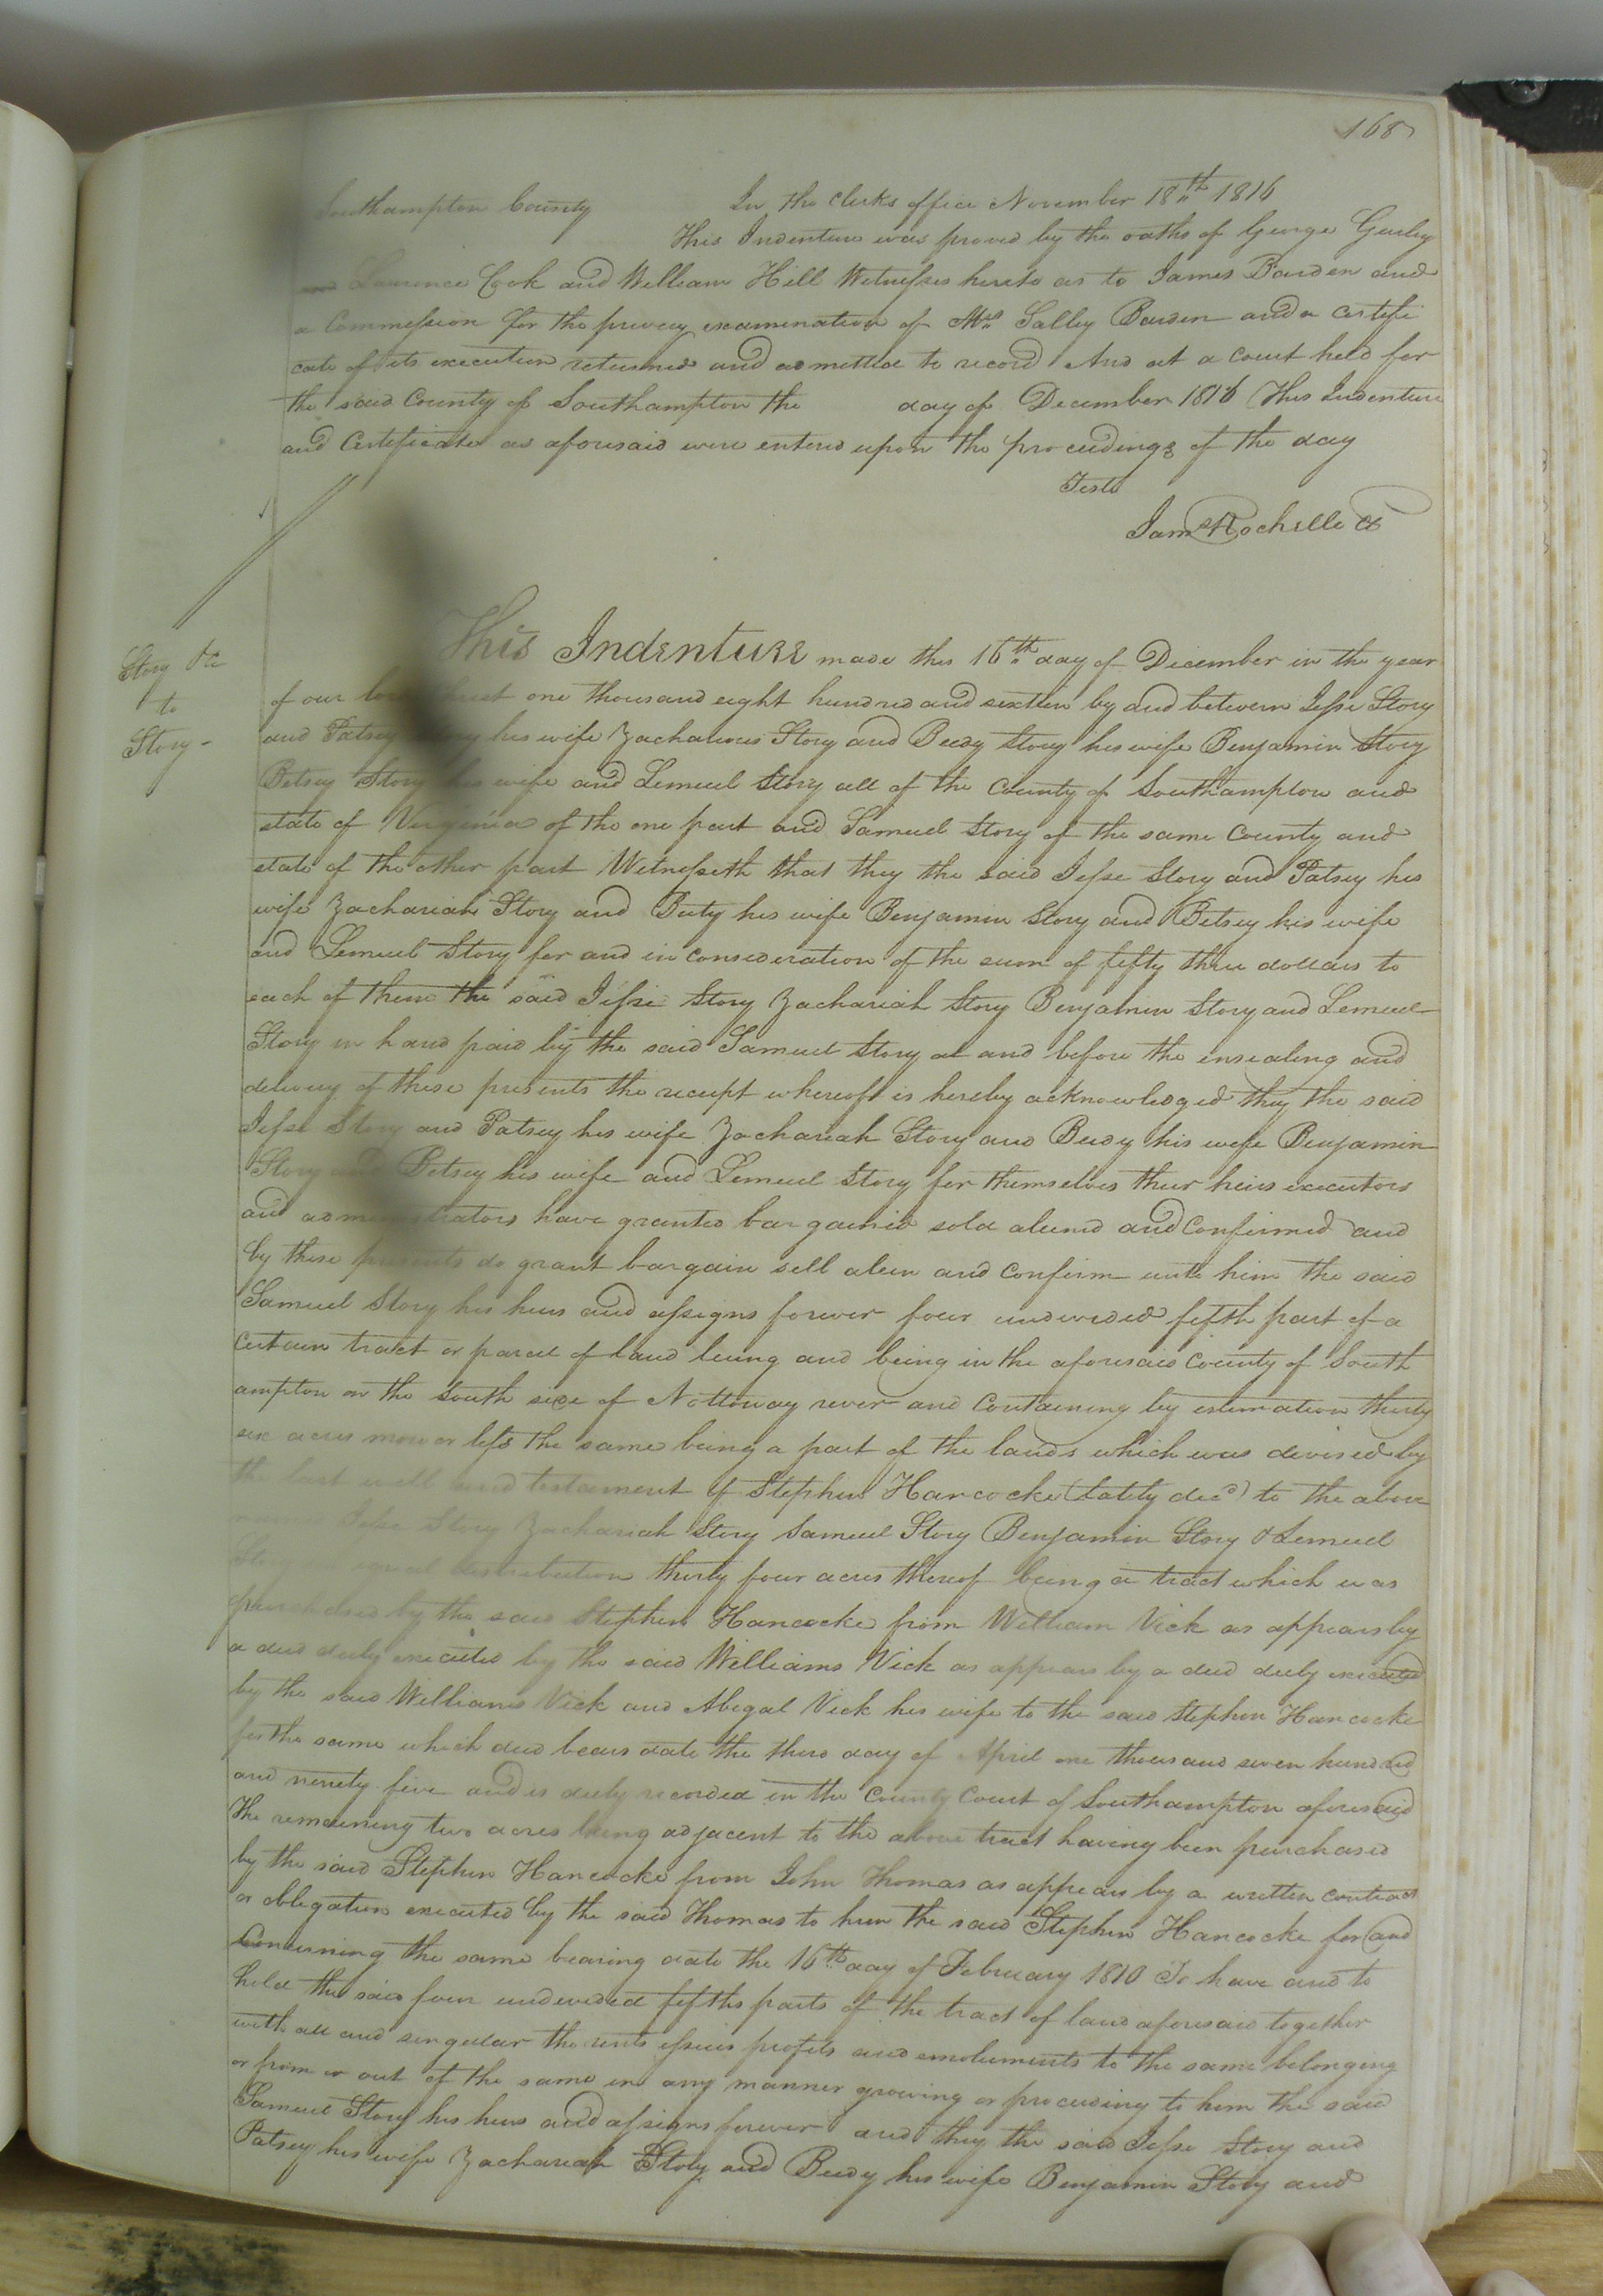 168
Southampton County In the clerks office November 18th 1816
This Indenture was proved by the oaths of George Gurley
Laurence Cook and William Hill Witnesses hereto as to James Barden and
a Commission for the privey examination of Mrs Salley Barden and a certifi
cate of its execution returned and admitted to record And at a court held for
the said County of Southampton the day of December 1816 This Indenture
and Certificate as aforesaid were entered upon the proceedings of the day
Teste
Jams Rochelle CC
Story &c
to
Story -
This Indenture made this 16th day of December in the year
of our lord one thousand eight hundred and sixteen by and between Jesse Story
and Patsey his wife Zacharious Story and Beedy Story his wife Benjamin Story
Betsey Story his wife and Lemuel Story all of the County of Southampton and
state of Virginia of the one part and Samuel Story of the same County and
state of the other part Witnesseth that they the said Jesse Story and Patsey his
wife Zachariah Story and Beedy his wife Benjamin Story and Betsey his wife
and Lemuel Story for and in consideration of the sum of fifty three dollars to
each of them the said Jesse Story Zachariah Story Benjamin Story and Lemuel
Story in hand paid by the said Samuel Story at and before the ensealing and
delivery of these presents the receipt whereoff is hereby acknowledged they the said
Jesse Story and Patsey his wife Zachariah Story and Beedy his wife Benjamin
Story and Betsey his wife and Lemuel Story for themselves their heirs executors
and administrators have granted bargained sold aliened and Confirmed and
by these presents do grant bargain sell alien and Confirm unto him the said
Samuel Story his heirs and assigns forever four undivided fifth part of a
certain tract or parcel of land lieing and being in the aforesaid County of South
ampton on the South side of Nottoway river and Containing by estimation thirty
six acres more or less the same being a part of the lands which was devised by
the last will and testament of Stephen Hancocke (lately decd) to the above
named Jesse Story Zachariah Story Samuel Story Benjamin Story & Lemuel
Story equal distribution thirty four acres thereof being a tract which was
purchased by the said Stephen Hancocke from William Vick as appears by
a deed duly executed by the said Williams Vick as appears by a deed duly executed
by the said Williams Vick and Abegal Vick his wife to the said Stephen Hancocke
for the same which deed bears date the third day of April one thousand seven hundred
and ninety five and is duly recorded in the County Court of Southampton aforesaid
The remaining two acres being adjacent to the above tract having been purchased
by the said Stephen Hancocke from John Thomas as appears by a written contract
or obligation executed by the said Thomas to him the said Stephen Hancocke for and
Concerning the same bearing date the 16th day of February 1810 To have and to
hold the said four undivided fifths parts of the tract of land aforesaid together
with all and singular the rents issues profits and emoluments to the same belonging
or from or out of the same in any manner growing or proceeding to him the said
Samuel Story his heirs and assigns forever and they the said Jesse Story and
Patsey his wife Zachariah Story and Beedy his wife Benjamin Story and